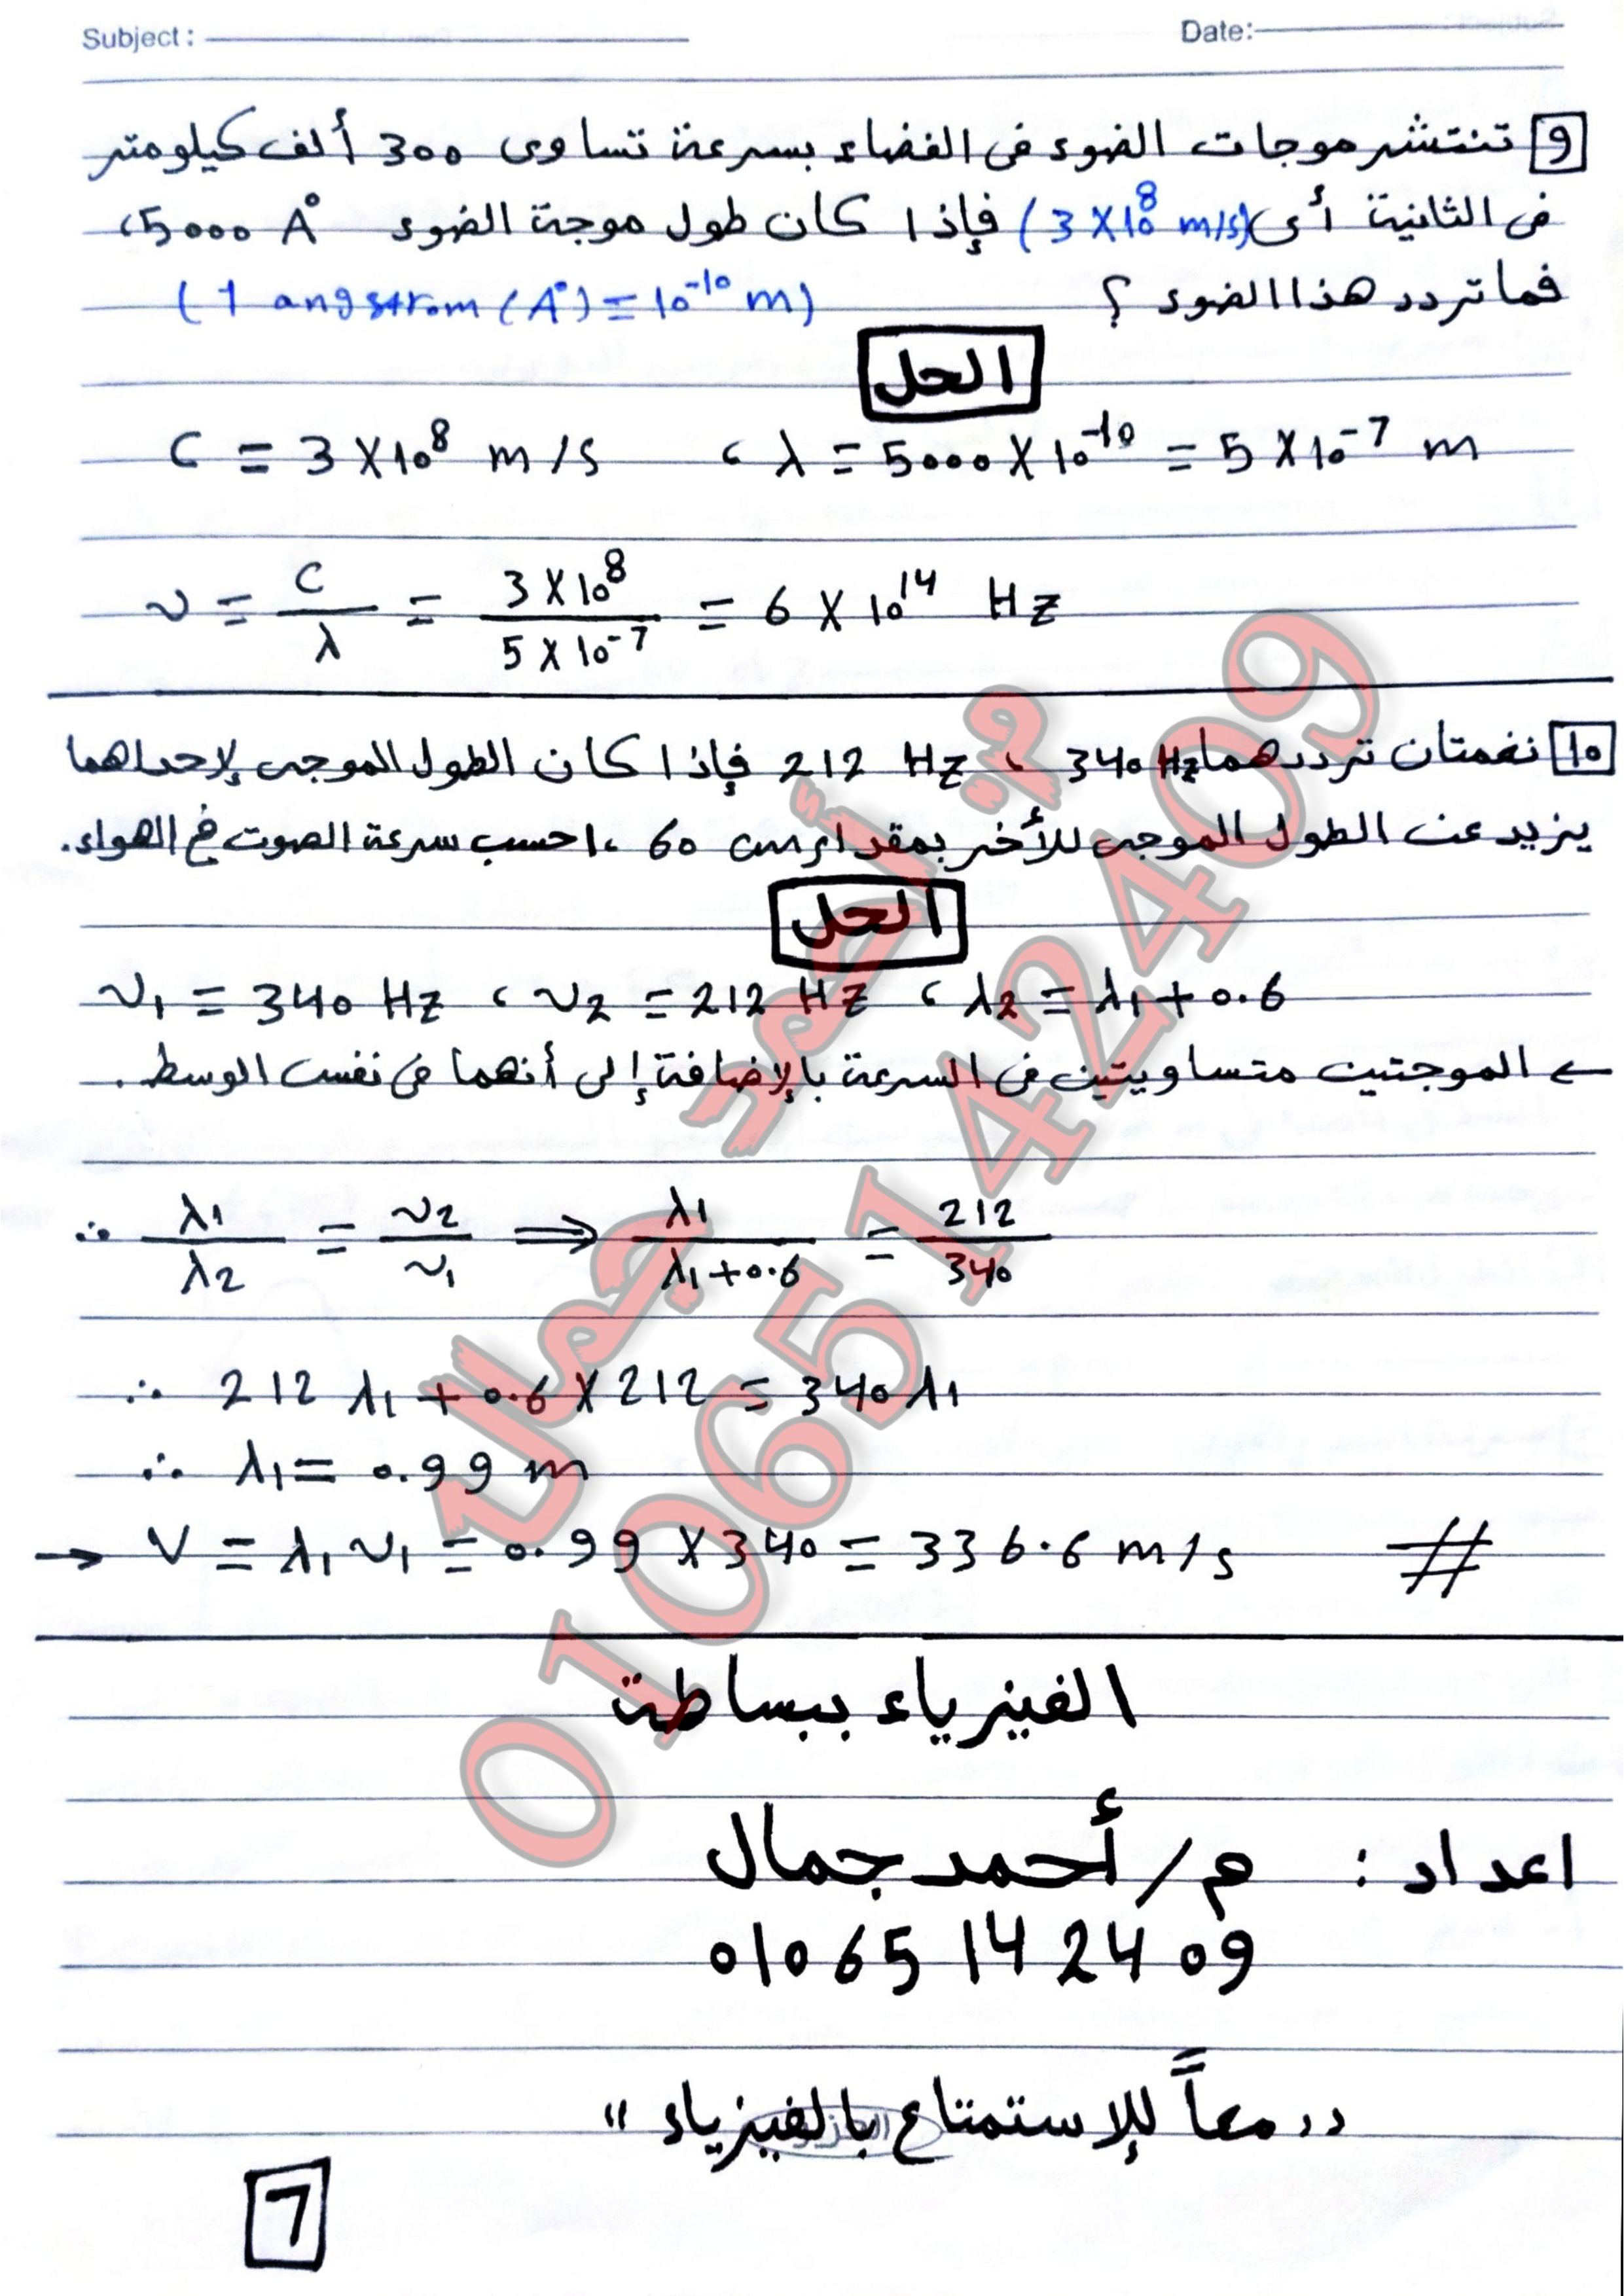 Subject : Date:
9 تنتشر موجات الضوء فى الفضاء بسرعة تساوى 300 ألف كيلومتر
فى الثانية أى (3 X 10⁸ m/s) فإذا كان طول موجة الضوء 5000 A° ،
فما تردد هذا الضوء ؟ (1 angstrom (A°) = 10⁻¹⁰ m)
الحل
C = 3 X 10⁸ m/s ، λ = 5000 X 10⁻¹⁰ = 5 X 10⁻⁷ m
ν = C/λ = (3 X 10⁸)/(5 X 10⁻⁷) = 6 X 10¹⁴ Hz
10 نغمتان ترددهما 340 Hz ، 212 Hz فإذا كان الطول الموجى لإحداهما
يزيد عن الطول الموجى للأخر بمقدار 60 cm ، احسب سرعة الصوت فى الهواء .
الحل
ν₁ = 340 Hz ، ν₂ = 212 Hz ، λ₂ = λ₁ + 0.6
← الموجتين متساويتين فى السرعة بالإضافة إلى أنهما فى نفس الوسط .
∴ λ₁/λ₂ = ν₂/ν₁ ⟹ λ₁/(λ₁+0.6) = 212/340
∴ 212 λ₁ + 0.6 X 212 = 340 λ₁
∴ λ₁ = 0.99 m
→ V = λ₁ ν₁ = 0.99 X 340 = 336.6 m/s #
الفيزياء ببساطة
اعداد : م/ أحمد جمال
01065142409
"معاً للإستمتاع بالفيزياء"
7
م: أحمد جمال
01065142409